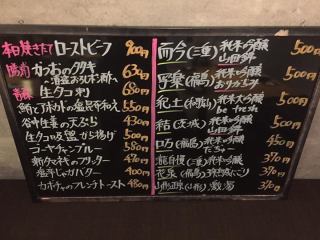 本日焼きたて ローストビーフ 900円
かつおのタタキ 630円
生タコ刺 680円
アボカドの塩昆布和え 550円
谷中生姜の天ぷら 430円
生タコの唐揚げ 500円
ゴーヤチャンプルー 580円
新タマネギのフリッター 470円
塩辛じゃがバター 400円
カボチャのフレンチトースト 480円
而今(三重) 純米吟醸 山田錦 500円
写楽(福島) 純米吟醸 500円
紀土(和歌山) 純米大吟醸 500円
結(茨城) 純米吟醸 山田錦 500円
ロ万(福島) 純米吟醸 450円
瀧自慢(三重) 純米吟醸 370円
花泉(福島) 370円
(山形) 370円